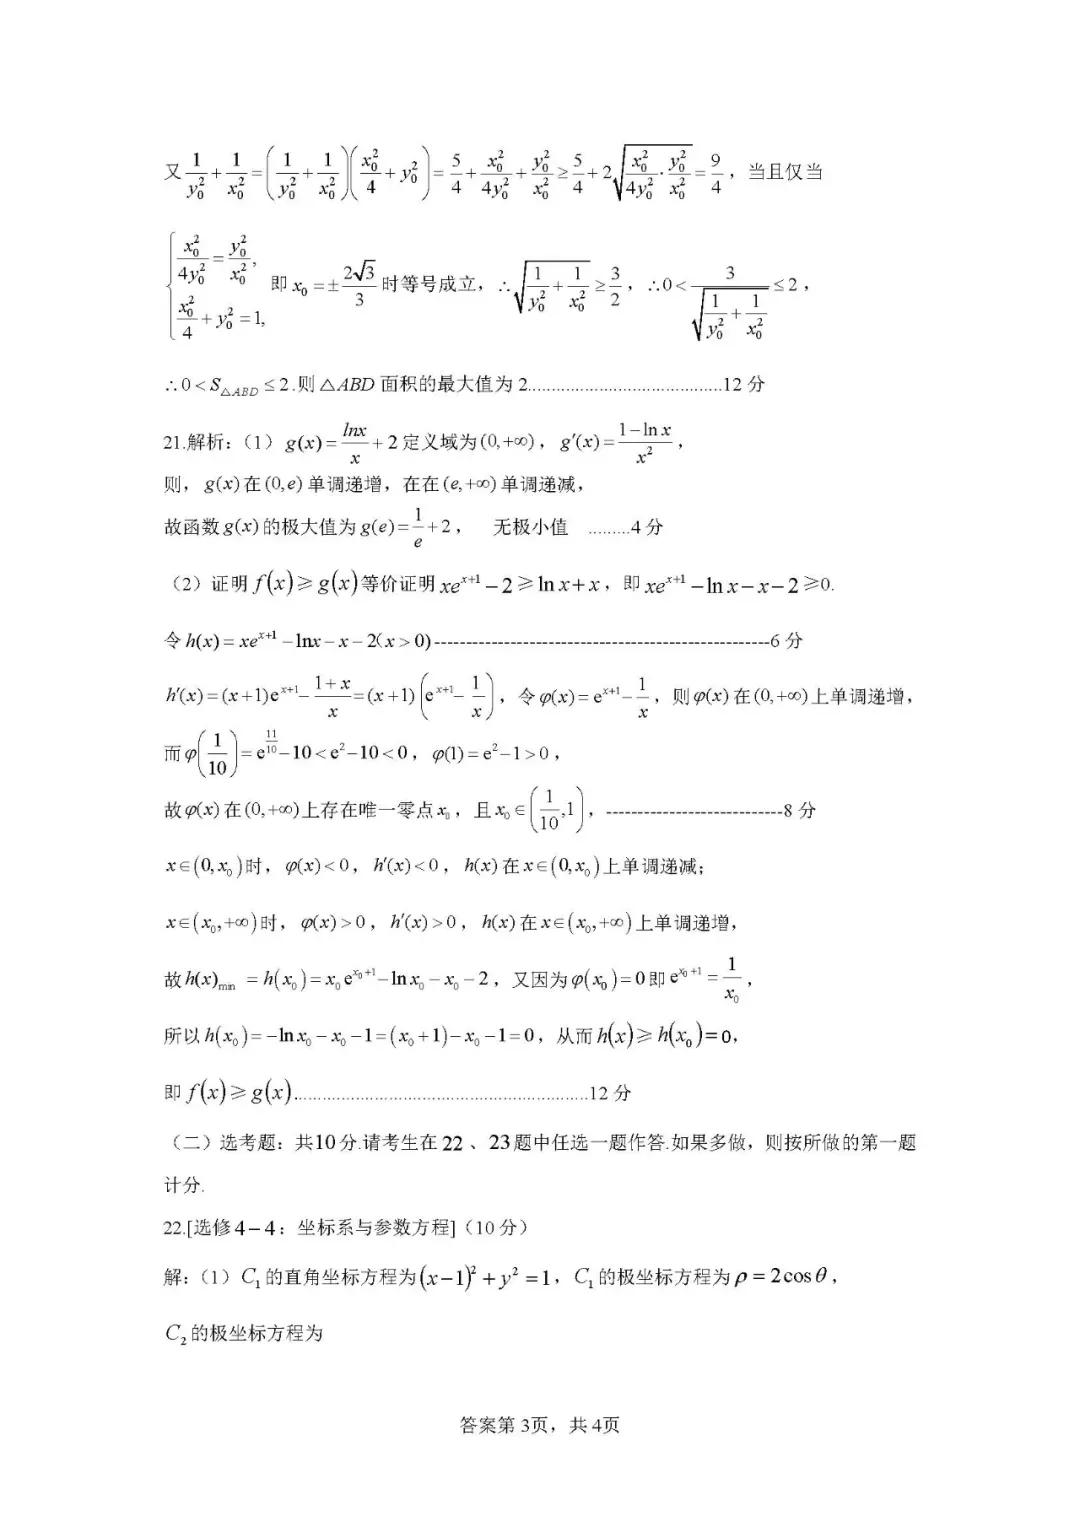 又 1/y₀² + 1/x₀² = (1/y₀² + 1/x₀²)(x₀²/4 + y₀²) = 5/4 + x₀²/4y₀² + y₀²/x₀² ≥ 5/4 + 2√(x₀²/4y₀² · y₀²/x₀²) = 9/4，当且仅当
{x₀²/4y₀² = y₀²/x₀², x₀²/4 + y₀² = 1, 即 x₀ = ±2√3/3 时等号成立，∴√(1/y₀² + 1/x₀²) ≥ 3/2，∴0 < 3/√(1/y₀² + 1/x₀²) ≤ 2，
∴0 < S△ABD ≤ 2.则△ABD 面积的最大值为 2.........................................12 分
21.解析:（1）g(x) = lnx/x + 2 定义域为(0,+∞)，g′(x) = (1−ln x)/x²，
则，g(x)在(0,e)单调递增，在在(e,+∞)单调递减，
故函数g(x)的极大值为g(e) = 1/e + 2， 无极小值 .........4 分
（2）证明 f(x) ≥ g(x)等价证明 xeˣ⁺¹ − 2 ≥ ln x + x，即 xeˣ⁺¹ − ln x − x − 2 ≥0.
令 h(x) = xeˣ⁺¹ − lnx − x − 2(x > 0)-----------------------------------------------------6 分
h′(x) = (x+1)eˣ⁺¹ − (1+x)/x = (x+1)(eˣ⁺¹ − 1/x)，令φ(x) = eˣ⁺¹ − 1/x，则φ(x)在(0,+∞)上单调递增，
而φ(1/10) = e^(11/10) − 10 < e² − 10 < 0，φ(1) = e² − 1 > 0，
故φ(x)在(0,+∞)上存在唯一零点x₀，且x₀∈(1/10,1)，----------------------------8 分
x∈(0,x₀)时，φ(x) < 0，h′(x) < 0，h(x)在x∈(0,x₀)上单调递减；
x∈(x₀,+∞)时，φ(x) > 0，h′(x) > 0，h(x)在x∈(x₀,+∞)上单调递增，
故h(x)min = h(x₀) = x₀e^(x₀+1) − ln x₀ − x₀ − 2，又因为φ(x₀) = 0即e^(x₀+1) = 1/x₀，
所以h(x₀) = −ln x₀ − x₀ − 1 = (x₀+1) − x₀ − 1 = 0，从而h(x) ≥ h(x₀) = 0，
即 f(x) ≥ g(x)..............................................................12 分
（二）选考题：共10分.请考生在 22 、23题中任选一题作答.如果多做，则按所做的第一题
计分.
22.[选修 4－4：坐标系与参数方程]（10 分）
解:（1）C₁的直角坐标方程为(x−1)² + y² = 1，C₁的极坐标方程为ρ = 2cosθ，
C₂的极坐标方程为
答案第 3页，共 4页